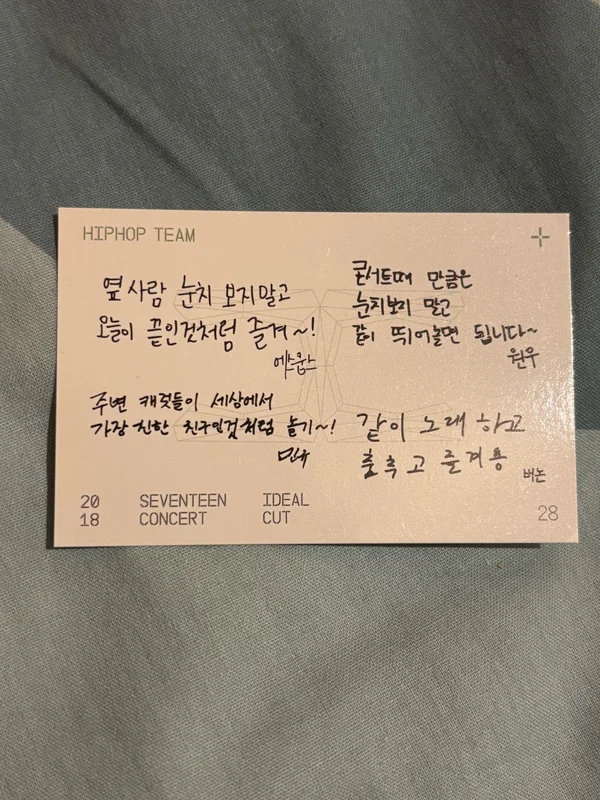 HIPHOP TEAM
옆 사람 눈치 보지말고
오늘이 끝인것처럼 즐겨~!
에스쿱스
콘서트때 만큼은
눈치보지 말고
같이 뛰어놀면 됩니다~
원우
주변 캐럿들이 세상에서
가장 친한 친구인것처럼 놀기~!
민규
같이 노래 하고
춤추고 즐겨용
버논
20 SEVENTEEN IDEAL
18 CONCERT CUT
28